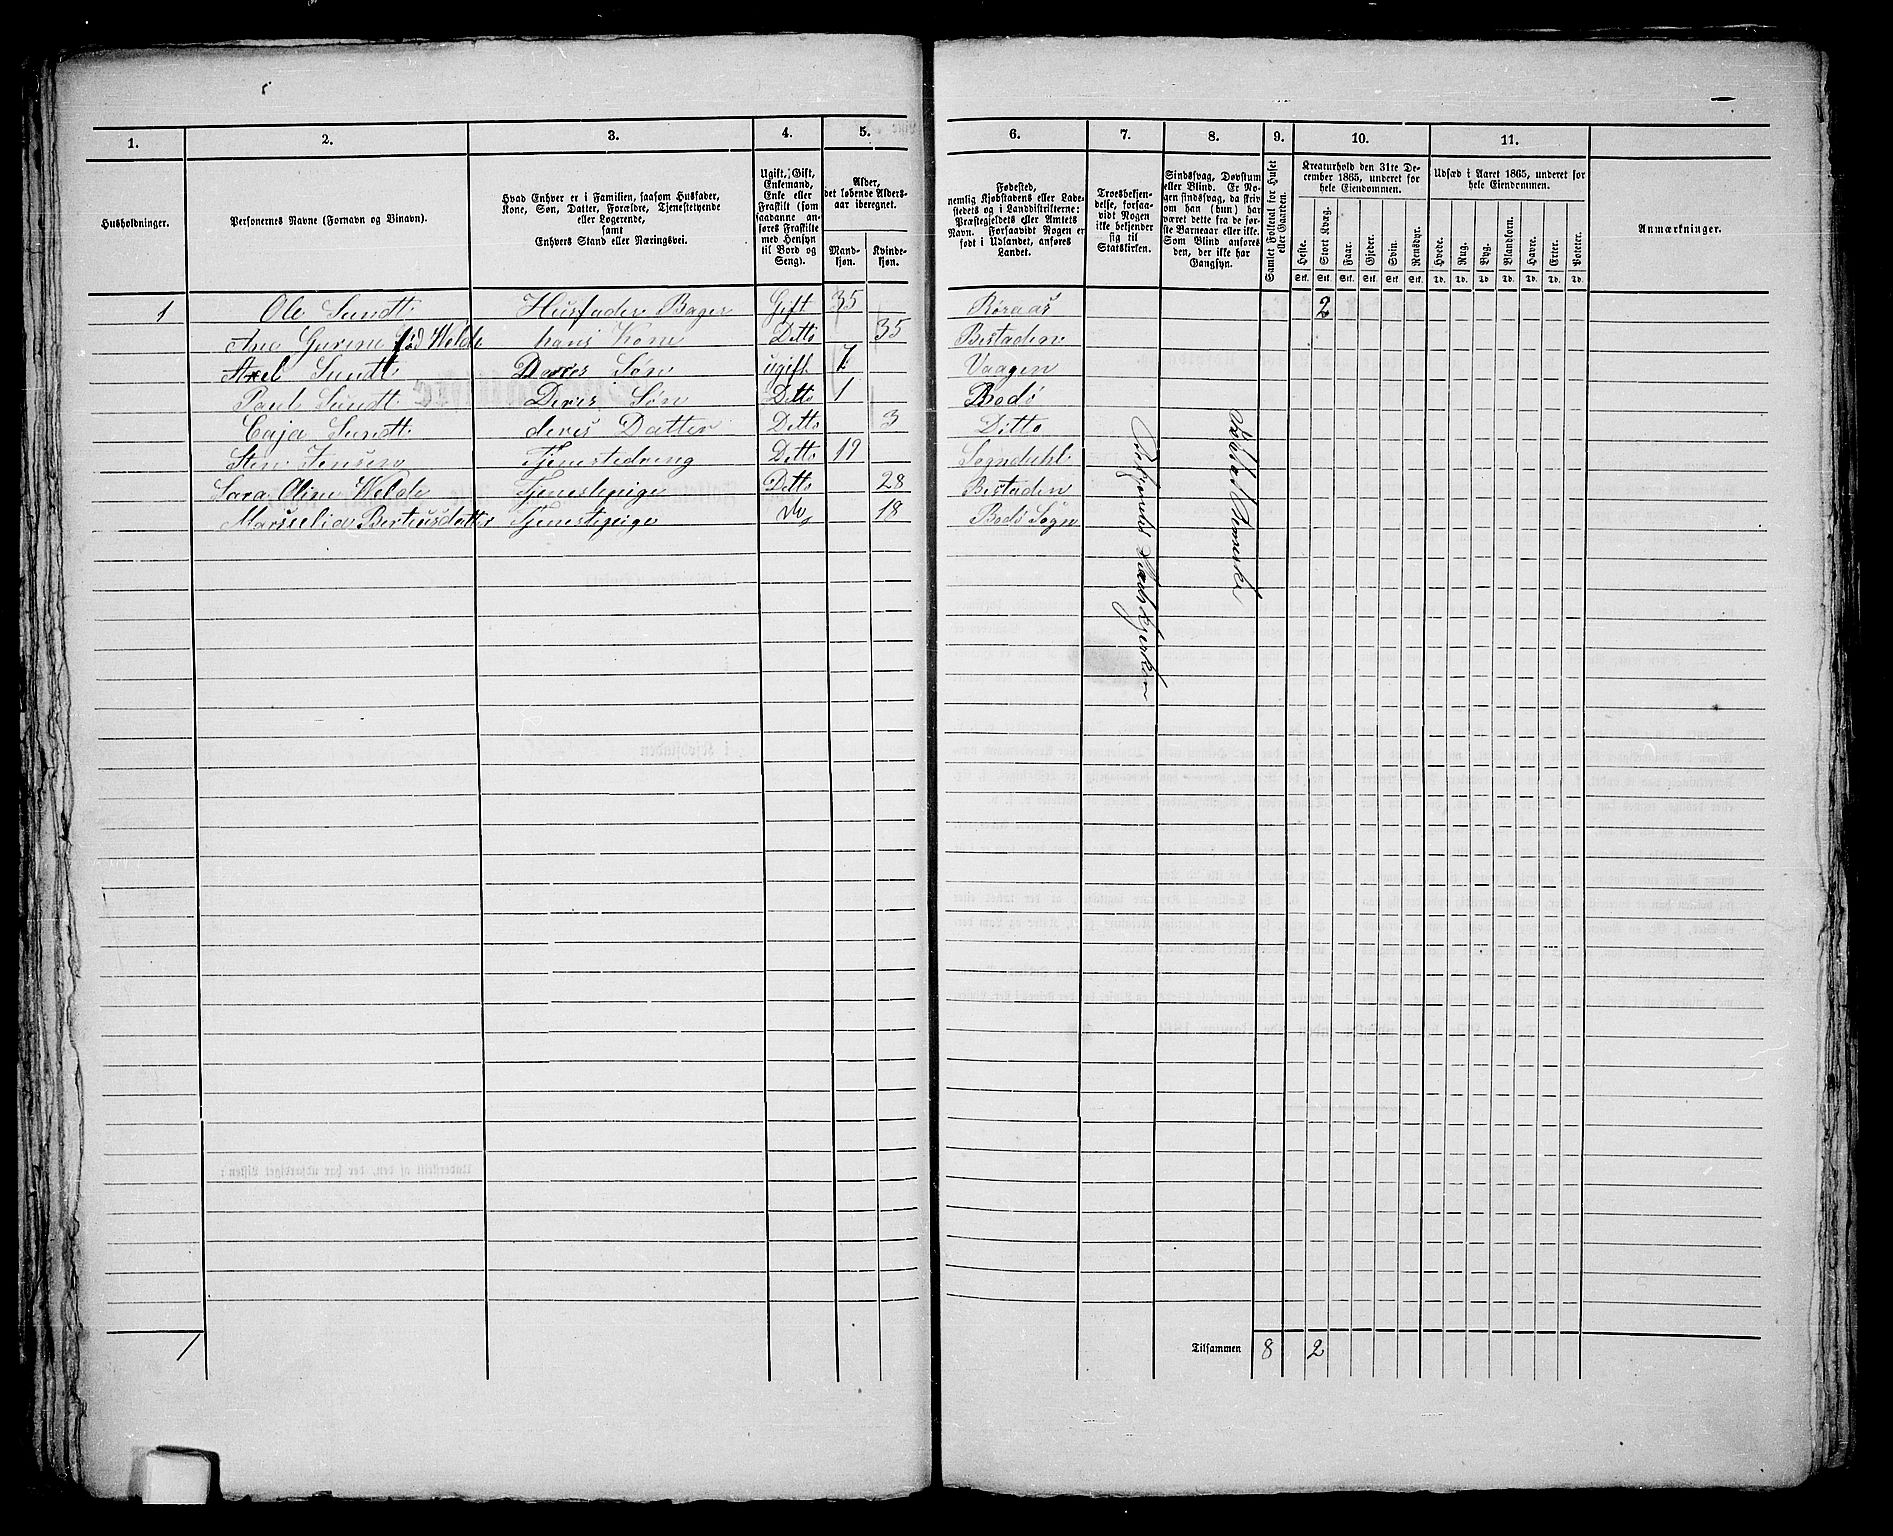 1. 2. 3. 4. 5. 6. 7. 8. 9. 10. 11.
Husholdninger.
Personernes Navne (Fornavn og Binavn).
Hvad Enhver er i Familien, saasom Husfader,
Kone, Søn, Datter, Forældre, Tjenestetyende
eller Logerende,
samt
Enhvers Stand eller Næringsvei.
Ugift, Gift,
Enkemand,
Enke eller
Fraskilt (som
saadanne an-
føres Fraskilte
med Hensyn
til Bord og
Seng).
Alder,
det løbende Alders-
aar iberegnet.
Mand-
kjøn.
Kvinde-
kjøn.
Fødested,
nemlig Kjøbstadens eller Lade-
stedets og i Landdistrikterne:
Præstegjeldets eller Amtets
Navn. Forsaavidt Nogen er
født i Udlandet, anføres
Landet.
Troesbekjen-
delse, forsaa-
vidt Nogen
ikke bekjender
sig til
Statskirken.
Sindssvag, Døvstum
eller Blind. Er No-
gen sindssvag, da skriv
om han (hun) har
været dette fra de før-
ste Barneaar eller ikke.
Som Blind anføres
den, der ikke har
Gangsyn.
Samlet Folketal for Huset
eller Gaarden.
Kreaturhold den 31te De-
cember 1865, underet for
hele Eiendommen.
Heste. Stort Kvæg. Faar. Gjeder. Svin. Rensdyr.
Stk. Stk. Stk. Stk. Stk. Stk.
Udsæd i Aaret 1865, underet for
hele Eiendommen.
Hvede. Rug. Byg. Blandkorn. Havre. Erter. Poteter.
Td. Td. Td. Td. Td. Td. Td.
Anmærkninger.
1 Ole Sundt Husfader Bager Gift 35 Røraas 2
Ane Gurine fød Welde hans Kone Ditto 35 Bestaden
Axel Sundt Deres Søn ugift 7 Vaagen
Paul Sundt Deres Søn Ditto 1 Bodö
Caja Sundt deres Datter Ditto 3 Ditto
Sten Jensen Tjenestedreng Ditto 19 Sogndahl
Sara Oline Welde Tjenestepige Ditto 28 Bestaden
Marselia Berteusdatter Tjenestepige do 18 Bodö Sogn
1
Tilsammen 8 2